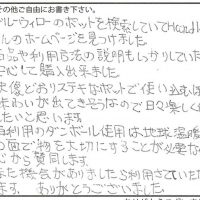 その他ご自由にお書き下さい。
ブルーウィローのポットを検索していて
んのホームページを見つけました
品や利用方法の説明もしっかりしていた
心して購入出来ました
像どおりステキなポットで使い込む
味わいが出てきそうなので日々楽しく
たいと思います
利用のダンボール使用は地球温暖
図で物を大切にすることが必要な
心から賛同します
た機会がありましたら利用させていただ
ます。ありがとうございました